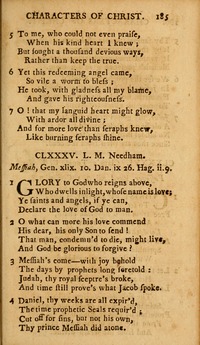 CHARACTERS OF CHRIST. 185
5 To me, who could not even praise,
When his kind heart I knew;
But sought a thousand devious ways,
Rather than keep the true.
6 Yet this redeeming angel came,
So vile a worm to bless;
He took, with gladness all my blame,
And gave his righteousness.
7 O! that my languid heart might glow,
With ardor all divine;
And for more love than seraphs knew,
Like burning seraphs shine.
CLXXXV. L. M. Needham.
Messiah, Gen. xlix. 10. Dan. ix 26. Hag. ii. 9.
1 GLORY to God who reigns above,
Who dwells in light, whose name is love;
Ye saints and angels, if ye can,
Declare the love of God to man.
2 O what can more his love commend
His dear, his only Son to send!
That man, condemn'd to die, might live,
And God be glorious to forgive?
3 Messiah's come—with joy behold
The days by prophets long foretold:
Judah, thy royal sceptre's broke,
And time still prove's what Jacob spoke.
4 Daniel, thy weeks are all expir'd,
The time prophetic Seals requir'd;
Cut off for sins, but not his own,
Thy prince Messiah did atone.